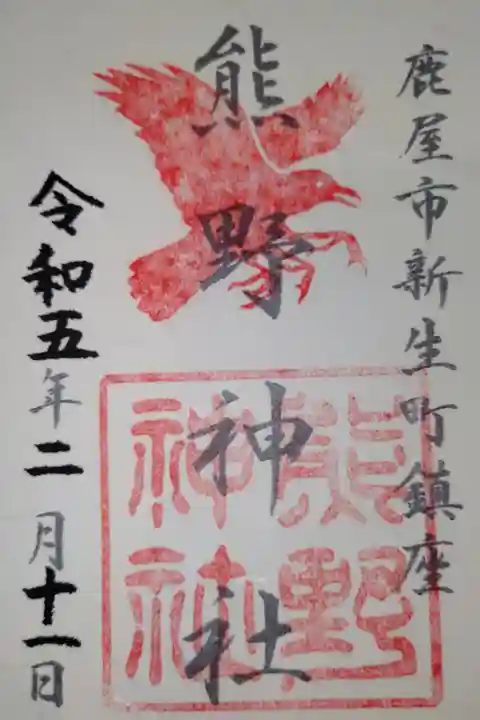 鹿屋市新生町鎮座
熊野神社
熊野
神社
令和五年二月十一日